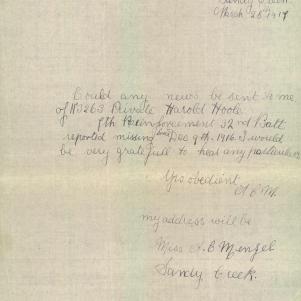 Sandy Creek.
March 26th 1917
Could any news be sent to me
of N 3263 Private Harold Hoole
8th Reinforcement 32nd Batt
reported missing since Dec 9th 1916. I would
be very gratefull to hear any particulars
Yrs obedient
A B M.
my address will be
Miss A. B Mengel
Sandy Creek.